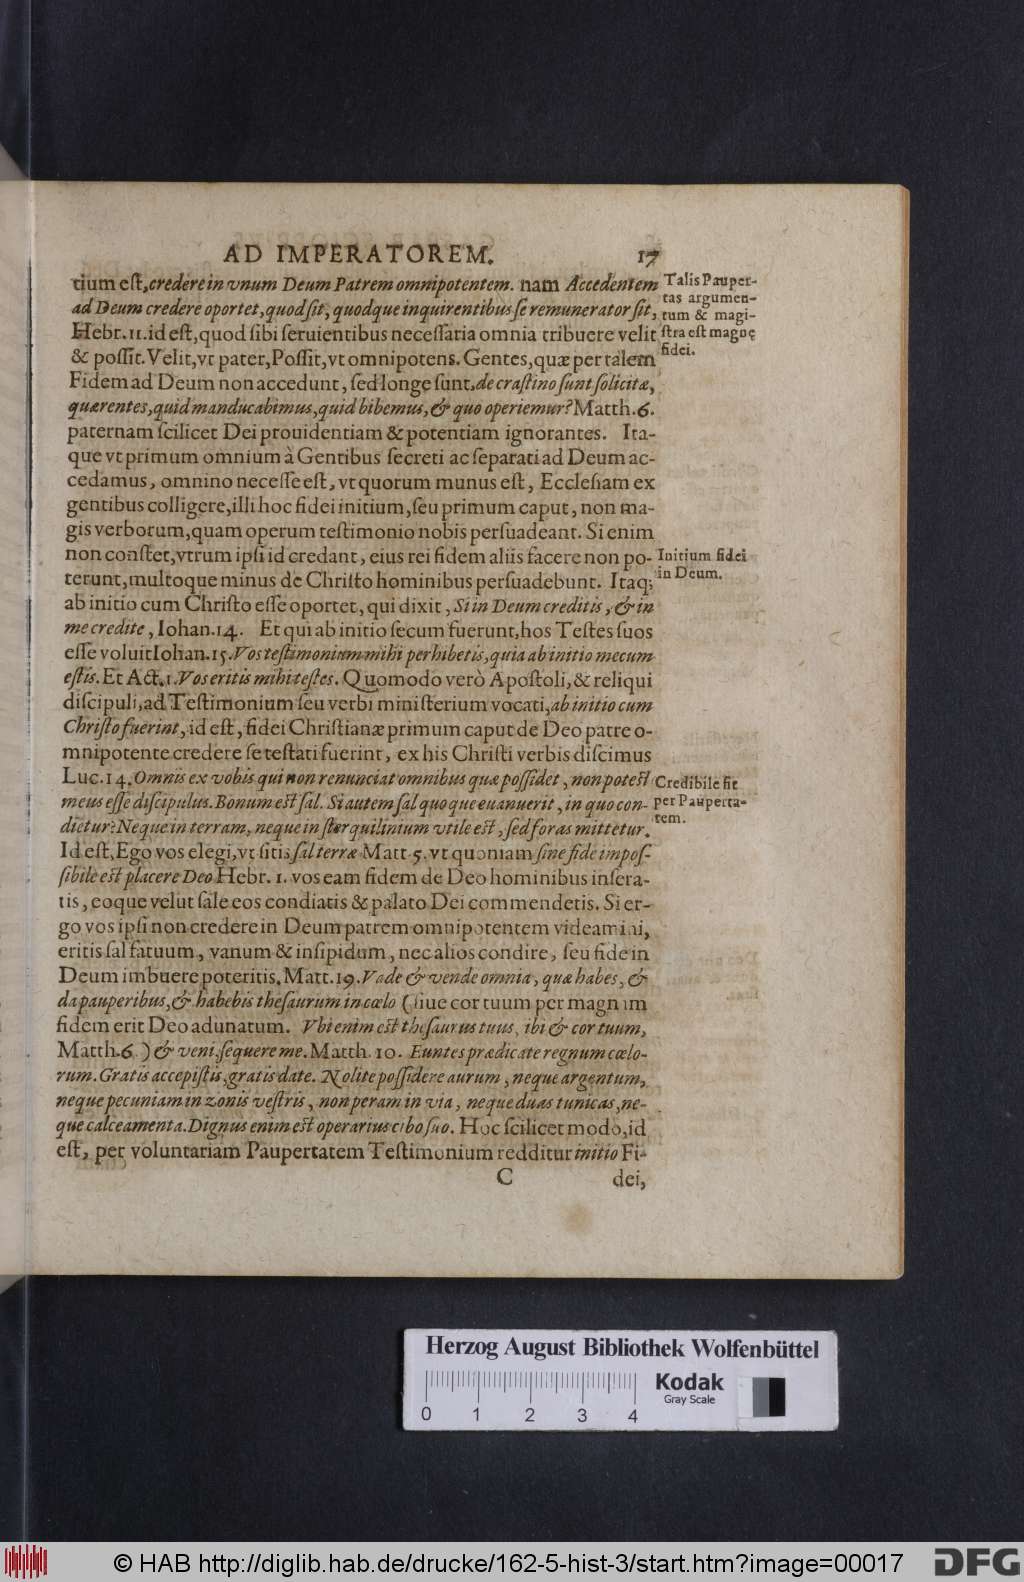 AD IMPERATOREM. 17
tium eſt, credere in vnum Deum Patrem omnipotentem. nam Accedentem
ad Deum credere oportet, quod ſit, quodque inquirentibus ſe remunerator ſit,
Hebr. 11. id eſt, quod ſibi ſeruientibus neceſſaria omnia tribuere velit
& poſſit. Velit, vt pater, Poſſit, vt omnipotens. Gentes, quæ per talem
Fidem ad Deum non accedunt, ſed longe ſunt, de craſtino ſunt ſolicitæ,
quærentes, quid manducabimus, quid bibemus, & quo operiemur? Matth. 6.
paternam ſcilicet Dei prouidentiam & potentiam ignorantes. Ita-
que vt primum omnium à Gentibus ſecreti ac ſeparati ad Deum ac-
cedamus, omnino neceſſe eſt, vt quorum munus eſt, Eccleſiam ex
gentibus colligere, illi hoc fidei initium, ſeu primum caput, non ma-
gis verborum, quam operum teſtimonio nobis perſuadeant. Si enim
non conſtet, vtrum ipſi id credant, eius rei fidem aliis facere non po-
terunt, multoque minus de Chriſto hominibus perſuadebunt. Itaq;
ab initio cum Chriſto eſſe oportet, qui dixit, Si in Deum creditis, & in
me credite, Iohan. 14. Et qui ab initio ſecum fuerunt, hos Teſtes ſuos
eſſe voluit Iohan. 15. Vos teſtimonium mihi perhibetis, quia ab initio mecum
eſtis. Et Act. 1. Vos eritis mihi teſtes. Quomodo verò Apoſtoli, & reliqui
diſcipuli, ad Teſtimonium ſeu verbi miniſterium vocati, ab initio cum
Chriſto fuerint, id eſt, fidei Chriſtianæ primum caput de Deo patre o-
mnipotente credere ſe teſtati fuerint, ex his Chriſti verbis diſcimus
Luc. 14. Omnis ex vobis qui non renunciat omnibus quæ poſſidet, non poteſt
meus eſſe diſcipulus. Bonum eſt ſal. Si autem ſal quoque euanuerit, in quo con-
dietur? Neque in terram, neque in ſterquilinium vtile eſt, ſed foras mittetur.
Id eſt, Ego vos elegi, vt ſitis ſal terræ Matt. 5. vt quoniam ſine fide impoſ-
ſibile eſt placere Deo Hebr. 1. vos eam fidem de Deo hominibus inſera-
tis, eoque velut ſale eos condiatis & palato Dei commendetis. Si er-
go vos ipſi non credere in Deum patrem omnipotentem videamini,
eritis ſal fatuum, vanum & inſipidum, nec alios condire, ſeu fide in
Deum imbuere poteritis. Matt. 19. Vade & vende omnia, quæ habes, &
da pauperibus, & habebis theſaurum in cœlo (ſiue cor tuum per magnam
fidem erit Deo adunatum. Vbi enim eſt theſaurus tuus, ibi & cor tuum,
Matth. 6.) & veni, ſequere me. Matth. 10. Euntes prædicate regnum cœlo-
rum. Gratis accepiſtis, gratis date. Nolite poſſidere aurum, neque argentum,
neque pecuniam in zonis veſtris, non peram in via, neque duas tunicas, ne-
que calceamenta. Dignus enim eſt operarius cibo ſuo. Hoc ſcilicet modo, id
eſt, per voluntariam Paupertatem Teſtimonium redditur initio Fi-
C dei,
Talis Pauper-
tas argumen-
tum & magi-
ſtra eſt magnę
fidei.
Initium fidei
in Deum.
Credibile fit
per Pauperta-
tem.
Herzog August Bibliothek Wolfenbüttel
Kodak
Gray Scale
0 1 2 3 4
© HAB http://diglib.hab.de/drucke/162-5-hist-3/start.htm?image=00017
DFG